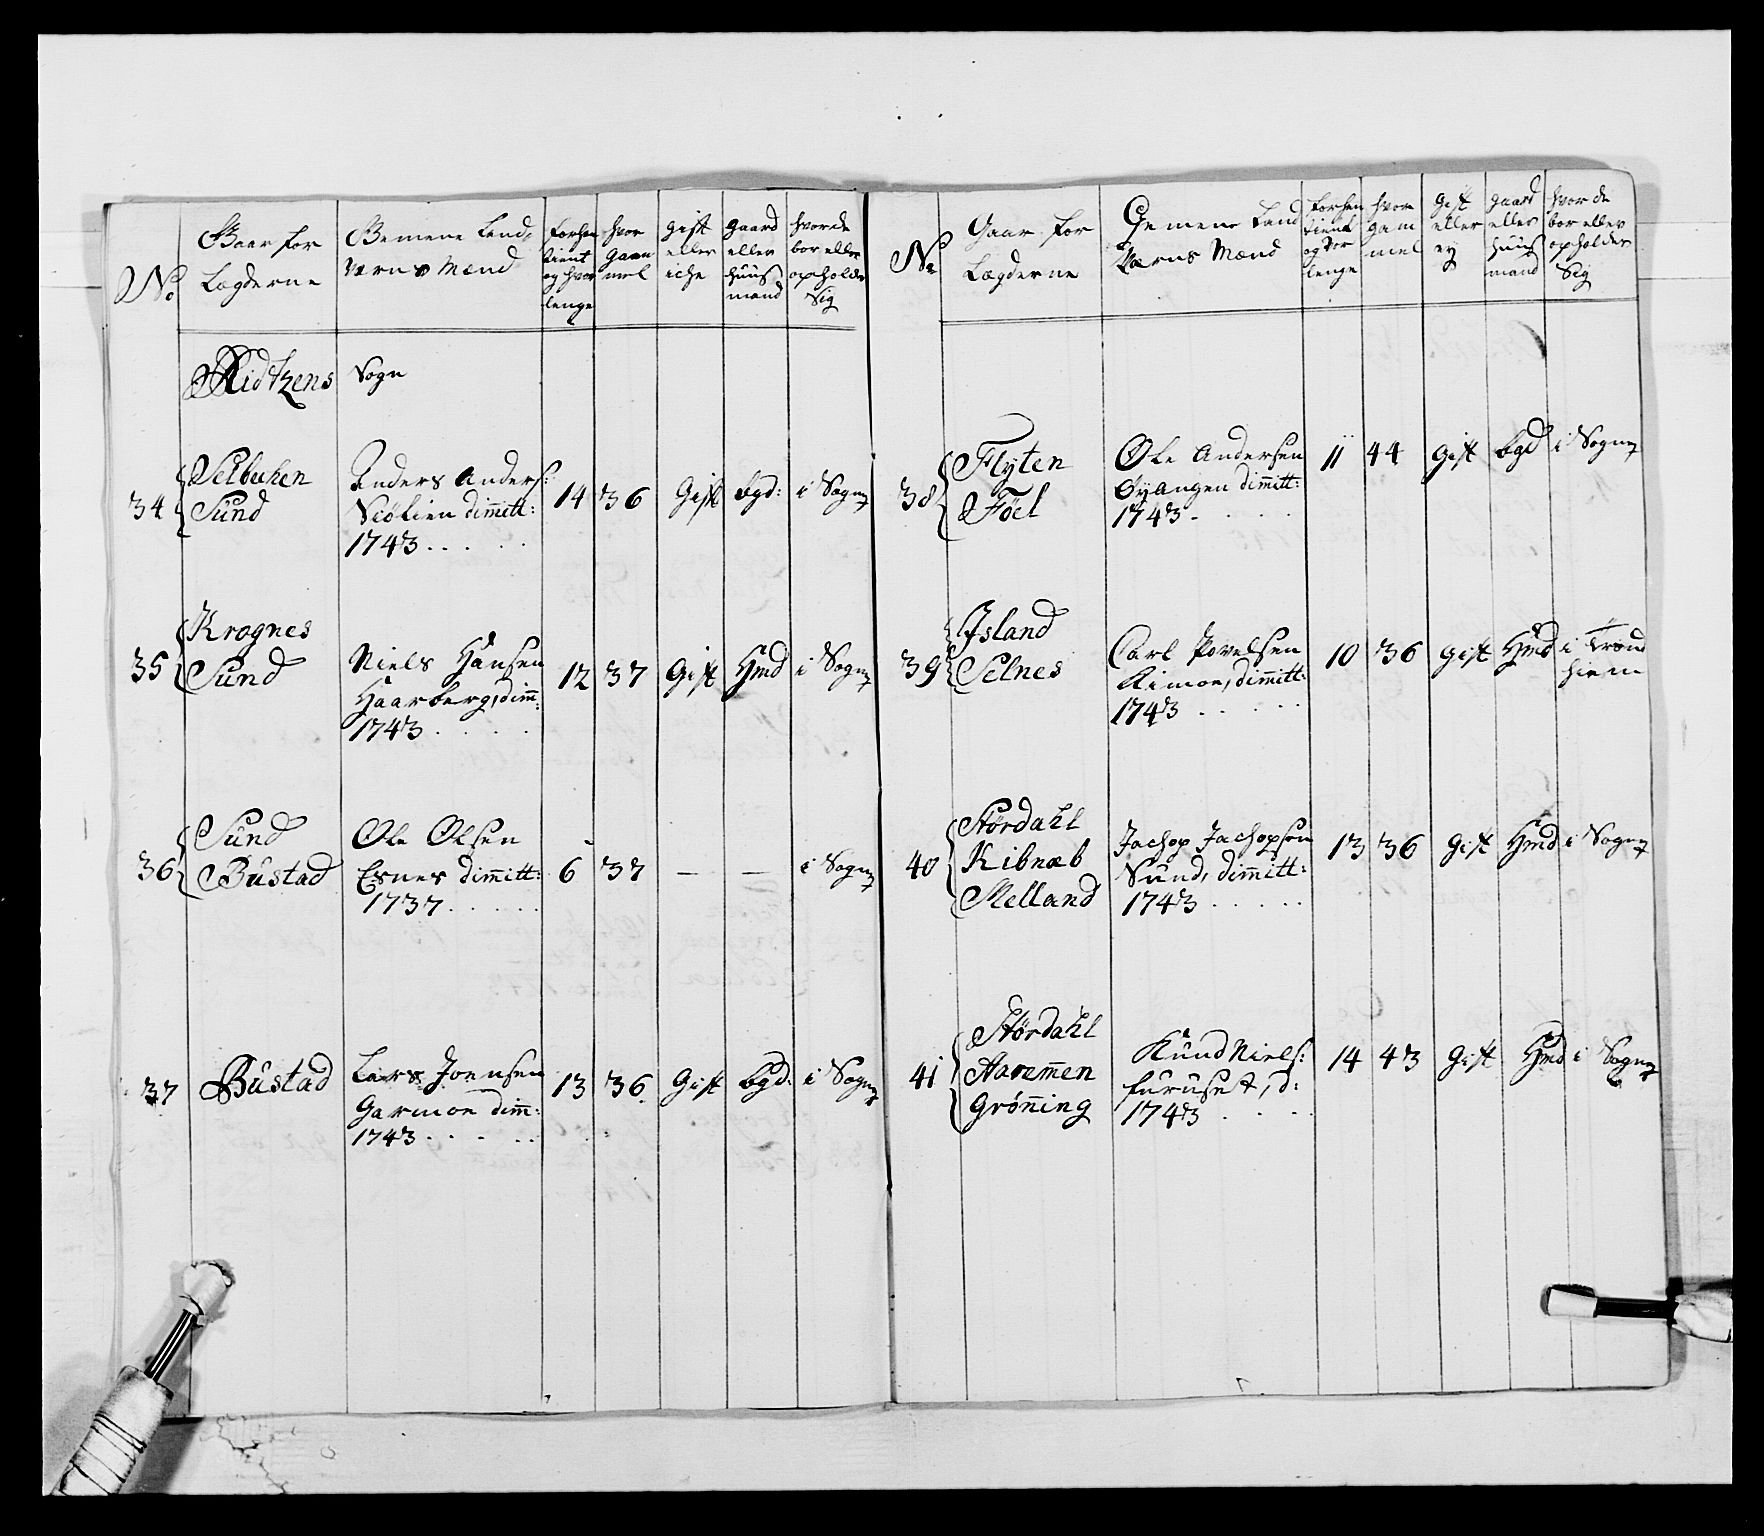 No
Gaar for
Lægderne
Gemene Land,
værns Mænd
forhen
tient
og hvor
lenge
hvor
gam
mel
gift
eller
iche
gaard
eller
huus
mand
hvor de
bor eller
opholder
Sig
Ridtzens Sogn
34
Selbechen
Sund
Anders Anders:
Siølien dimitt:
1743
14
36
Gift
bgd:
i Sogn
35
Krognes
Sund
Niels Hansen
Haarberg, dim:
1743
12
37
Gift
Hmd
i Sogn
36
Sund
Bustad
Ole Olsen
Esnes dimitt:
1737
6
37
—
—
i Sogn
37
Bustad
Lars Joensen
Garmoe dim:
1743
13
36
Gift
bgd:
i Sogn
No
Gaar for
Lægderne
Gemene Land
Værns Mænd
forhen
tient
og hvor
lenge
hvor
gam
mel
gift
eller
ey
gaard
eller
huus
mand
hvor de
bor eller
opholder
Sig
38
Flyten
Föel
Ole Andersen
Øyangen dimitt:
1743
11
44
Gift
bgd
i Sogn
39
Island
Selnes
Carl Povelsen
Rimoe, dimitt:
1743
10
36
Gift
Hmd
i Trond
hiem
40
Störda​hl
Kibnæb
Melland
Jachop Jachopsen
Sund, dimitt:
1743
13
36
Gift
Hmd
i Sogn
41
Störda​hl
Aaremmen
Grönning
Knud Niels:
furuset, d:
1743
14
43
Gift
Hmd
i Sogn